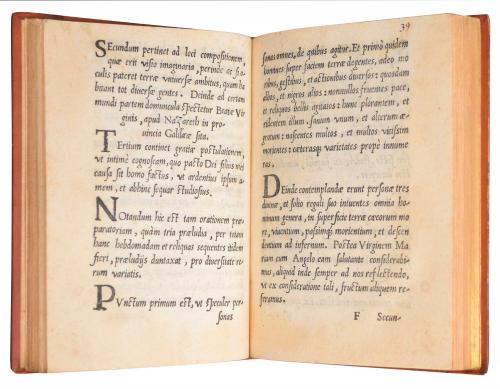 SEcundum pertinet ad loci compositionem,
quæ erit visio imaginaria, perinde ac si o-
culis pateret terræ vniuersæ ambitus, quam ha
bitant tot diuersæ gentes. Deinde ad certam
mundi partem domuncula spectetur Beatæ Vir
ginis, apud Nazareth in pro-
uincia Galilææ sita.
TErtium continet gratiæ postulationem,
vt intimè cognoscam, quo pacto Dei filius mei
causa sit homo factus, vt ardentius ipsum a-
mem, et abhinc sequar studiosius.
NOtandum hic est tam orationem præ-
paratoriam, quàm tria præludia, per totam
hanc hebdomadam et reliquas sequentes itidem
fieri, præludijs duntaxat, pro diuersitate re-
rum variatis.
PVnctum primum est, vt speculer per-
sonas
39
sonas omnes, de quibus agitur. Et primò quidem
homines super faciem terræ degentes, adeo mo
ribus, gestibus, et actionibus diuersos: quosdam
albos, et nigros alios: nonnullos fruentes pace,
et reliquos bellis agitatos: hunc plorantem, et
ridentem illum, sanum vnum, et alterum æ-
grotum: nascentes multos, et multos vicissim
morientes: cæterasq; varietates propè innume
ras.
DEinde contemplandæ erunt personæ tres
diuinæ, et solio regali suo intuentes omnia ho-
minum genera, in superficie terræ cæcorum mo-
re, viuentium, passimq; morientium, et descen-
dentium ad infernum. Postea Virginem Ma
riam cum Angelo eam salutante considerabi-
mus, aliquid inde semper ad nos reflectendo,
vt ex consideratione tali, fructum aliquem re-
feramus.
F Secun-